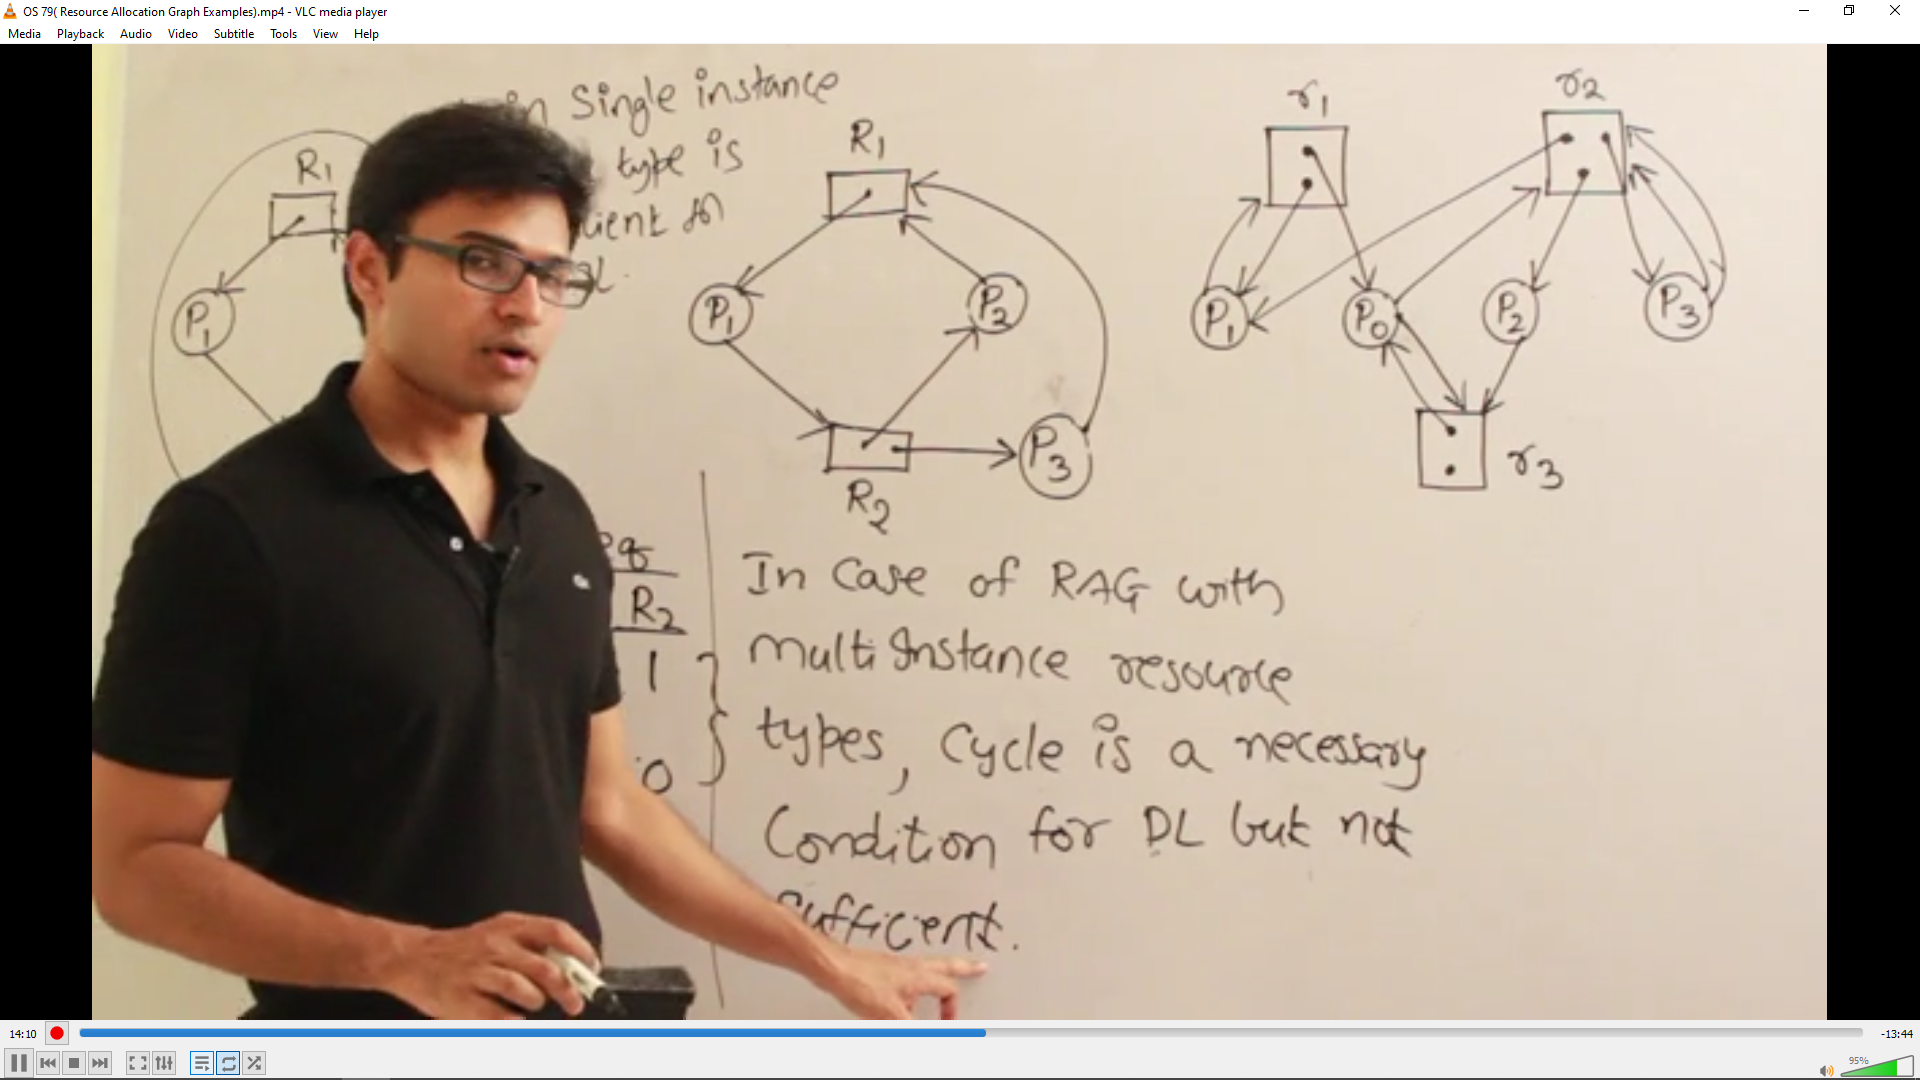 OS 79( Resource Allocation Graph Examples).mp4 - VLC media player
Media Playback Audio Video Subtitle Tools View Help
in Single instance
type is
R1
P1
R1
P1
P2
R2
P3
r1
r2
P1
P0
P2
P3
r3
R2
1
0
In Case of RAG with
multi Instance resource
types, Cycle is a necessary
Condition for DL but not
Sufficient.
14:10
-13:44
95%